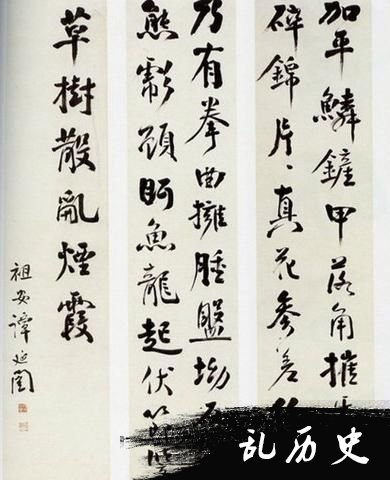 加平鱗鏟甲落角摧
碎錦片片真花參差
乃有拳曲擁腫盤坳
熊彪顧眄魚龍起伏節
草樹散亂煙霞
祖安譚延闓
乱历史